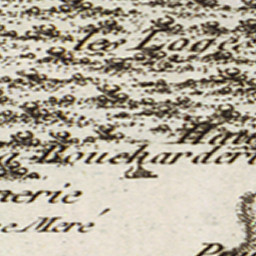 les Loge
Hau
la Boucharderie
nerie
e Meré